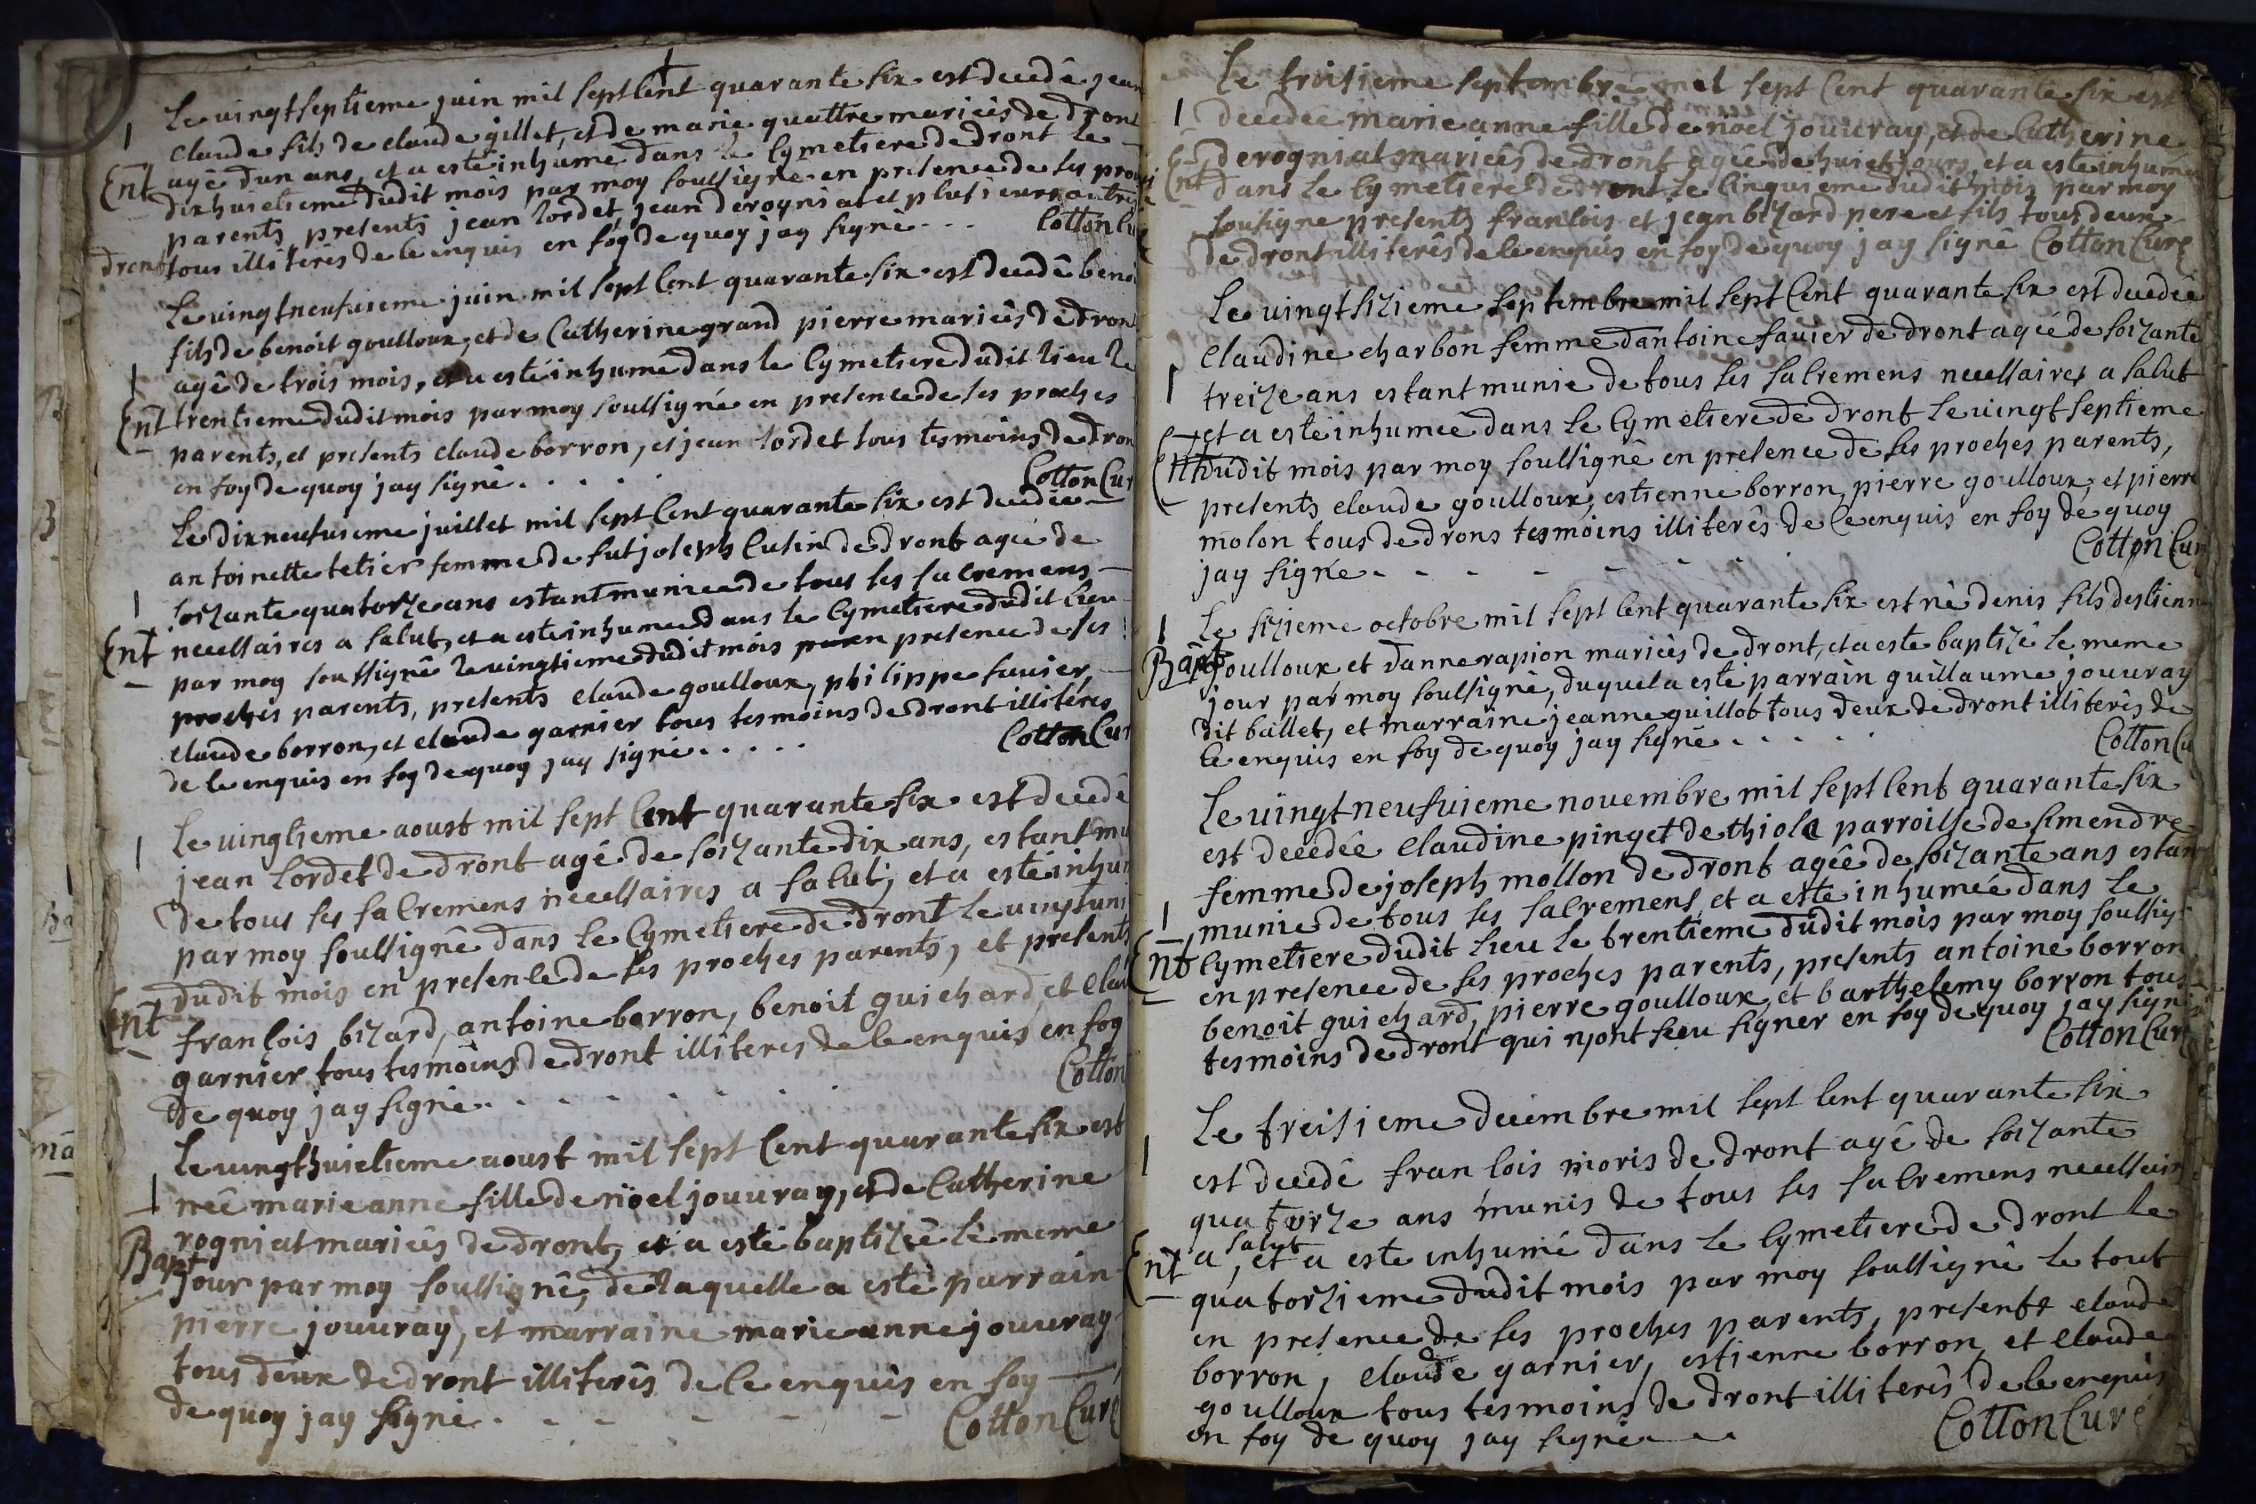 Le vingtseptieme juin mil sept Cent quarante six est decedé jean
claude fils de claude gillet, et de marie quattre mariés de dront
agé dun ans, et a esté inhumé dans le Cymetiere de dront le
Ent
dixhuictieme dudit mois par moy soussigne en presence de ses proches
parents, presents jean lordet, jean derogniat et plusieurs autres
dront tous illiterés de ce enquis en foy de quoy jay signé - - - Cotton Curé
Le vingtneufvieme juin mil sept Cent quarante six est decedé benoit
fils de benoit goulloux, et de Catherine grand pierre mariés de dront
agé de trois mois, et a esté inhumé dans le Cymetiere dudit lieu le
Ent trentieme dudit mois par moy soussigné en presence de ses proches
parents, et presents claude borron, et jean lordet tous tesmoins de dront
en foy de quoy jay signé . . . . . Cotton Curé
Le dixneufvieme juillet mil sept Cent quarante six est decedée
antoinette tetier femme de fut joseph Cusin de dront agée de
soizante quatorze ans estant munie de tous ses sacremens
Ent necessaires a salut, et a esté inhumée dans le Cymetiere dudit lieu
par moy soussigné le vingtieme dudit mois en presence de ses
proches parents, presents claude goulloux, philippe favier,
claude borron, et claude garnier tous tesmoins de dront illiterés
de ce enquis en foy de quoy jay signé . . . . . Cotton Curé
Le vingtieme aoust mil sept Cent quarante six est decedé
jean lordet de dront agé de soizante dix ans, estant mu
de tous ses sacremens necessaires a salut, et a esté inhum
par moy soussigné dans le Cymetiere de dront le vingtuni
dudit mois en presence de ses proches parents, et presents
Ent françois bizard, antoine borron, benoit guichard, et clau
garnier tous tesmoins de dront illiteres de ce enquis en foy
de quoy jay signé . . . . . . . Cotton
Le vingthuictieme aoust mil sept Cent quarante six est
née marie anne fille de nöel jouuray, et de Catherine
rogniat mariés de dront, et a esté baptizée le meme
Bapt jour par moy soussigné, de laquelle a esté parrain
pierre jouuray, et marraine marie anne jouuray
tous deux de dront illiterés de ce enquis en foy
de quoy jay signé - - - - - - Cotton Curé
Le troisieme septembre mil sept Cent quarante six est
decedée marie anne fille de nöel jouuray, et de Catherine
derogniat mariés de dront agée de huict jours, et a esté inhumée
Ent dans le Cymetiere de dront le Cinquieme dudit mois par moy
soussigne presents francois et jean bizard pere et fils tous deux
de dront illiterés de ce enquis en foy de quoy jay signé Cotton Curé
Le vingtsizieme septembre mil sept Cent quarante six est decedée
Claudine charbon femme dantoine favier de dront agée de soizante
treize ans estant munie de tous ses sacremens necessaires a salut
et a esté inhumée dans le Cymetiere de dront le vingt septieme
Ent dudit mois par moy soussigné en presence de ses proches parents,
presents claude goulloux, estienne borron, pierre goulloux, et pierre
molon tous de drons tesmoins illiterés de Ce enquis en foy de quoy
jay signé - - - - - - - Cotton Curé
Le sizieme octobre mil sept Cent quarante six est né denis fils destienne
Bapt goulloux, et danne rapion mariés de dront, et a este baptizé le meme
jour par moy soussigné, duquel a esté parrain guillaume jouuray
dit ballet, et marraine jeanne guillot tous deux de dront illiterés de
Ce enquis en foy de quoy jay signé . . . . . Cotton Cu
Le vingtneufvieme novembre mil sept Cent quarante six
est decedée Claudine pinget de thiole parroisse de simendre
femme de joseph mollon de dront agée de soizante ans estan
munie de tous ses sacremens, et a esté inhumée dans le
Ent Cymetiere dudit lieu le trentieme dudit mois par moy soussigné
en presence de ses proches parents, presents antoine borron
benoit guichard, pierre goulloux, et barthelemy borron tous
tesmoins de dront qui n'ont sceu signer en foy de quoy jay signé
Cotton Curé
Le treisieme decembre mil sept Cent quarante six
est decedé francois moris de dront agé de soizante
quatorze ans munis de tous ses sacremens necessair
Ent a salut, et a este inhumé dans le Cymetiere de dront le
quatorzieme dudit mois par moy soussigné le tout
en presence de ses proches parents, presents claude
borron, claude garnier, estienne borron, et claude
goulloux tous tesmoins de dront illiterés de ce enquis
en foy de quoy jay signé - - - Cotton Curé